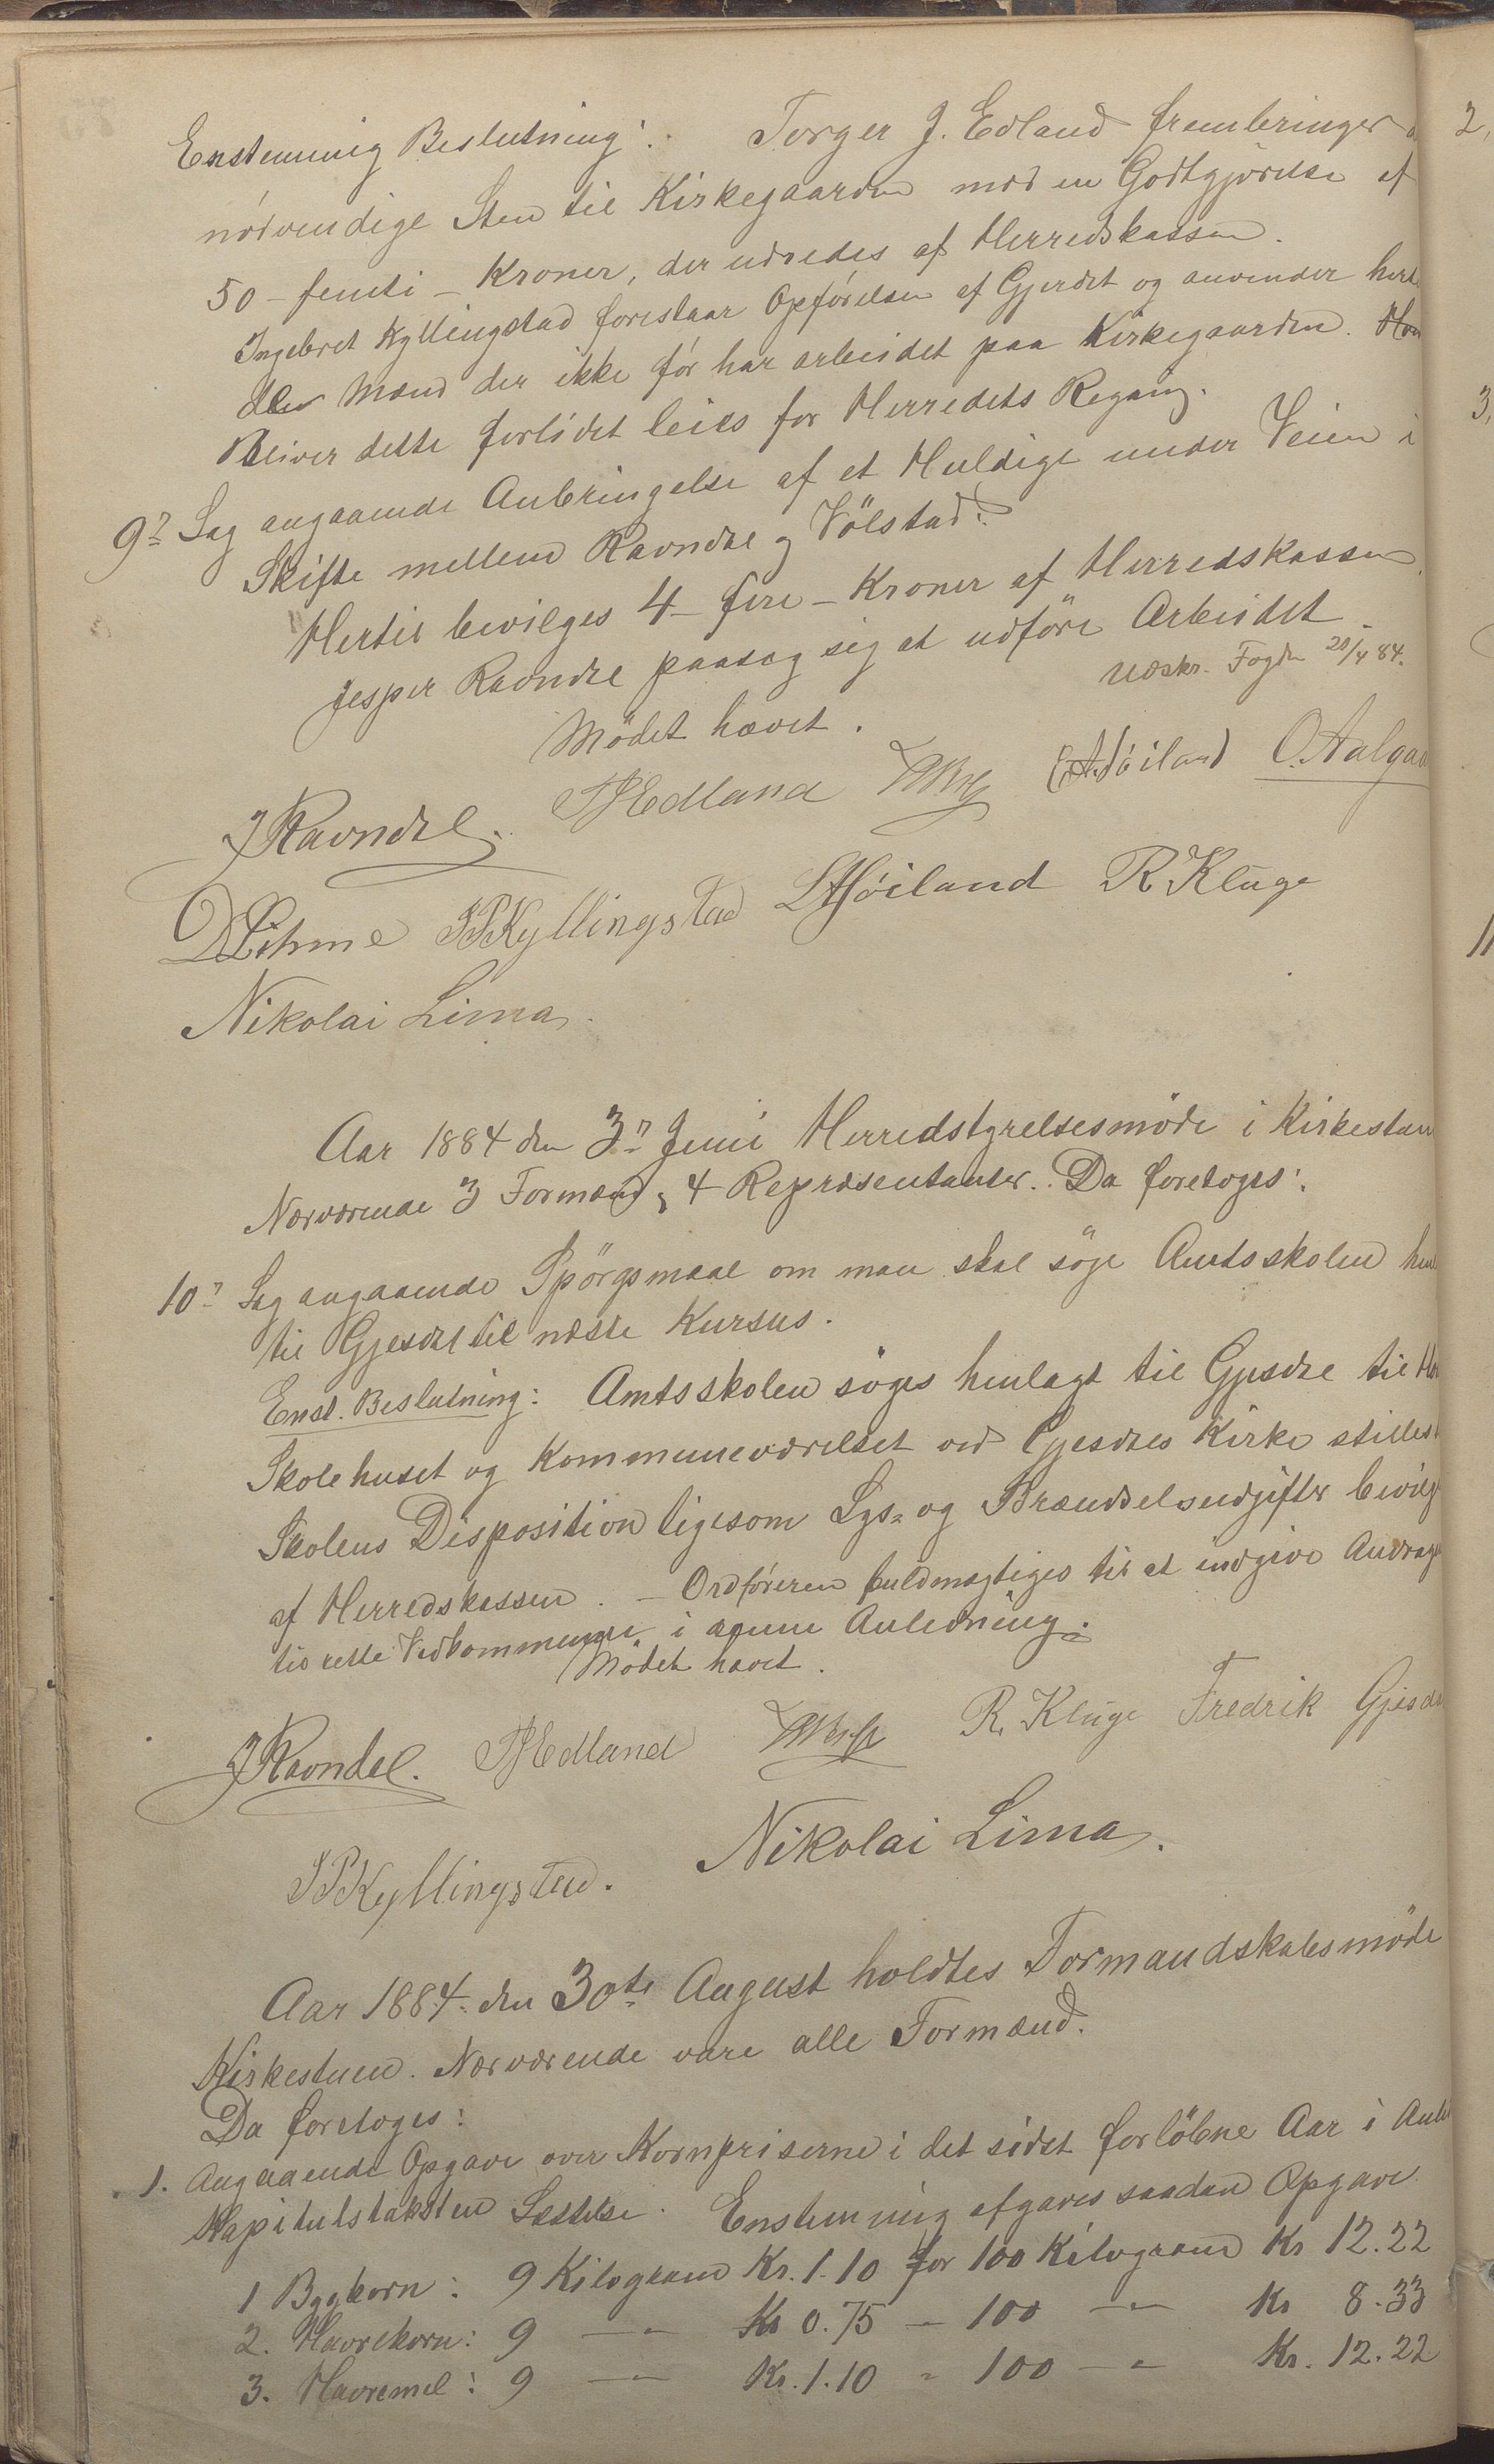 Enstemmig Beslutning: Torger J. Edland frembringer
nødvendige Sten til Kirkegaarden mod en Godtgjörelse af
50 - femti - Kroner, der udredes af Herredskassen.
Ingebret Kyllingstad forestaar Opförelsen af Gjerdet og anvender
Mænd der ikke för har arbeidet paa Kirkegaarden.
Bliver dette forlidet leies for Herredets Regning.
9? Sag angaaende Anbringelse af et Huldige under Veien i
Skifte mellem Ravndal og Völstad:
Hertil bevilges 4 - fire - Kroner af Herredskassen.
Jesper Ravndal paatog sig at udföre Arbeidet.
Udskr. Fogden 20/4 84.
Mödet hævet.
J Ravndal. TJEdland Höiland O. Aalgaa
D Lihme IPKyllingstad Höiland R Kluge
Nikolai Lima.
Aar 1884 den 3? Juni Herredstyrelsesmöde i Kirkestuen
Nærværende 3 Formænd, 4 Repræsentanter. Da foretoges:
10? Sag angaaende Spörgsmaal om man skal söge Amtsskolen
til Gjesdal til næste Kursus.
Enst. Beslutning: Amtsskolen söges henlagt til Gjesdal til
Skolehuset og Kommuneværelset ved Gjesdals Kirke stilles
Skolens Disposition ligesom Lys- og Brændselsudgifter bevilg
af Herredskassen. - Ordföreren fuldmægtiges til at indgive Andrag
til rette Vedkommende i denne Anledning.
Mödet hævet.
J Ravndal. TJEdland R. Kluge Fredrik Gjesda
IPKyllingstad. Nikolai Lima.
Aar 1884 den 30te August holdtes Formandskabsmöde
Kirkestuen. Nærværende vare alle Formænd.
Da foretoges:
1. Angaaende Opgave over Kornpriserne i det sidst forlöbne Aar i Anle
Kapitulstakstens Sættelse. Enstemmig afgaves saadan Opgave
1 Bygkorn: 9 Kilogram Kr. 1.10 for 100 Kilogram Kr 12.22
2. Havrekorn: 9 — " — Kr 0.75 - 100 — " — Kr 8.33
3. Havremel: 9 — " — Kr. 1.10 - 100 — " — Kr. 12.22
2,
3,
11